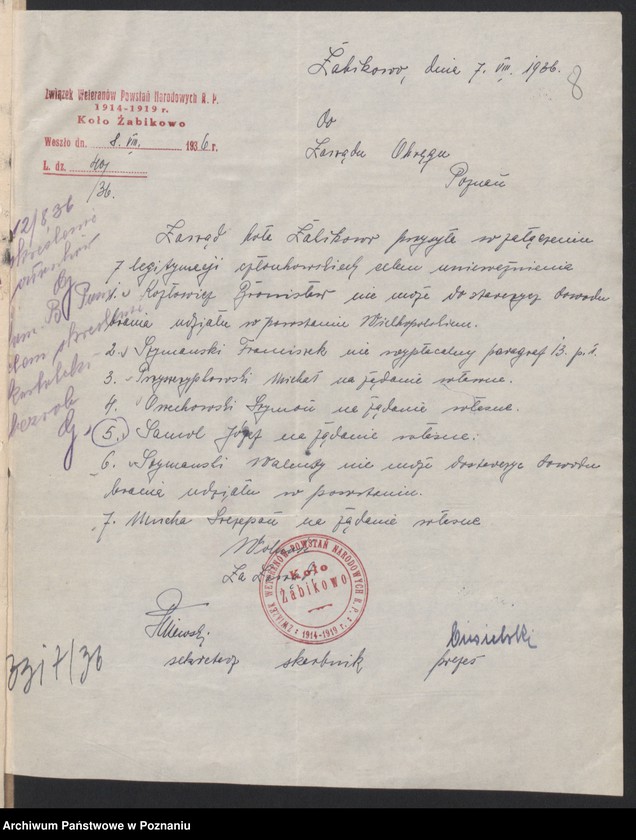 Żabikowo, dnia 7. VIII. 1936.
8
Związek Weteranów Powstań Narodowych R. P.
1914-1919 r.
Koło Żabikowo
Weszło dn. 8. VIII. 1936 r.
L. dz.
/36.
Do
Zarządu Okręgu
Poznań
12/8.36
Zarząd koła Żabikowo przesyła w załączeniu
7 legitymacji członkowskich celem unieważnienia
1. Kozłowicz Bronisław nie może dostarczyć dowodu
brania udziału w powstaniu Wielkopolskim.
2. Szymański Franciszek nie wypłacalny paragraf 13. p. 4.
3. Przyszypkowski Michał na żądanie własne.
4. Orzechowski Szymon na żądanie własne.
5. Samol Józef na żądanie własne.
6. Szymański Walenty nie może dostarczyć dowodu
brania udziału w powstaniu.
7. Mucha Szczepan na żądanie własne
Za Zarząd
ZWIĄZEK WETERANÓW POWSTAŃ NARODOWYCH R. P.
1914-1919 r.
Koło
Żabikowo
sekretarz skarbnik prezes
33i7/36
Archiwum Państwowe w Poznaniu